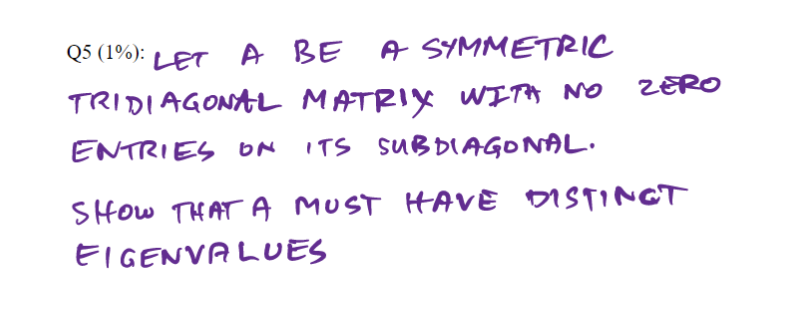 Q5 (1%): LET A BE A SYMMETRIC
TRIDIAGONAL MATRIX WITH NO ZERO
ENTRIES ON ITS SUBDIAGONAL.
SHOW THAT A MUST HAVE DISTINCT
EIGENVALUES